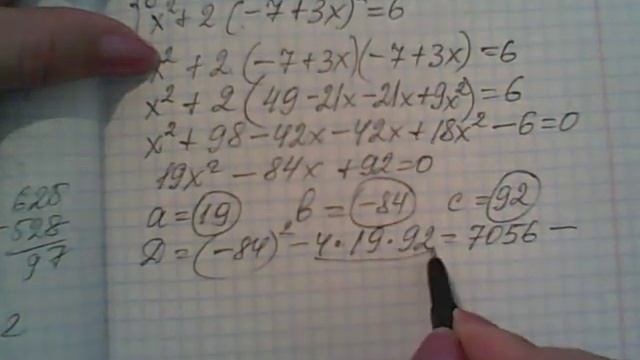 x² + 2(-7+3x)² = 6
x² + 2(-7+3x)(-7+3x) = 6
x² + 2(49-21x-21x+9x²) = 6
x² + 98 - 42x - 42x + 18x² - 6 = 0
19x² - 84x + 92 = 0
a = 19 в = -84 c = 92
Д = (-84)² - 4·19·92 = 7056 -
625
- 528
97
2